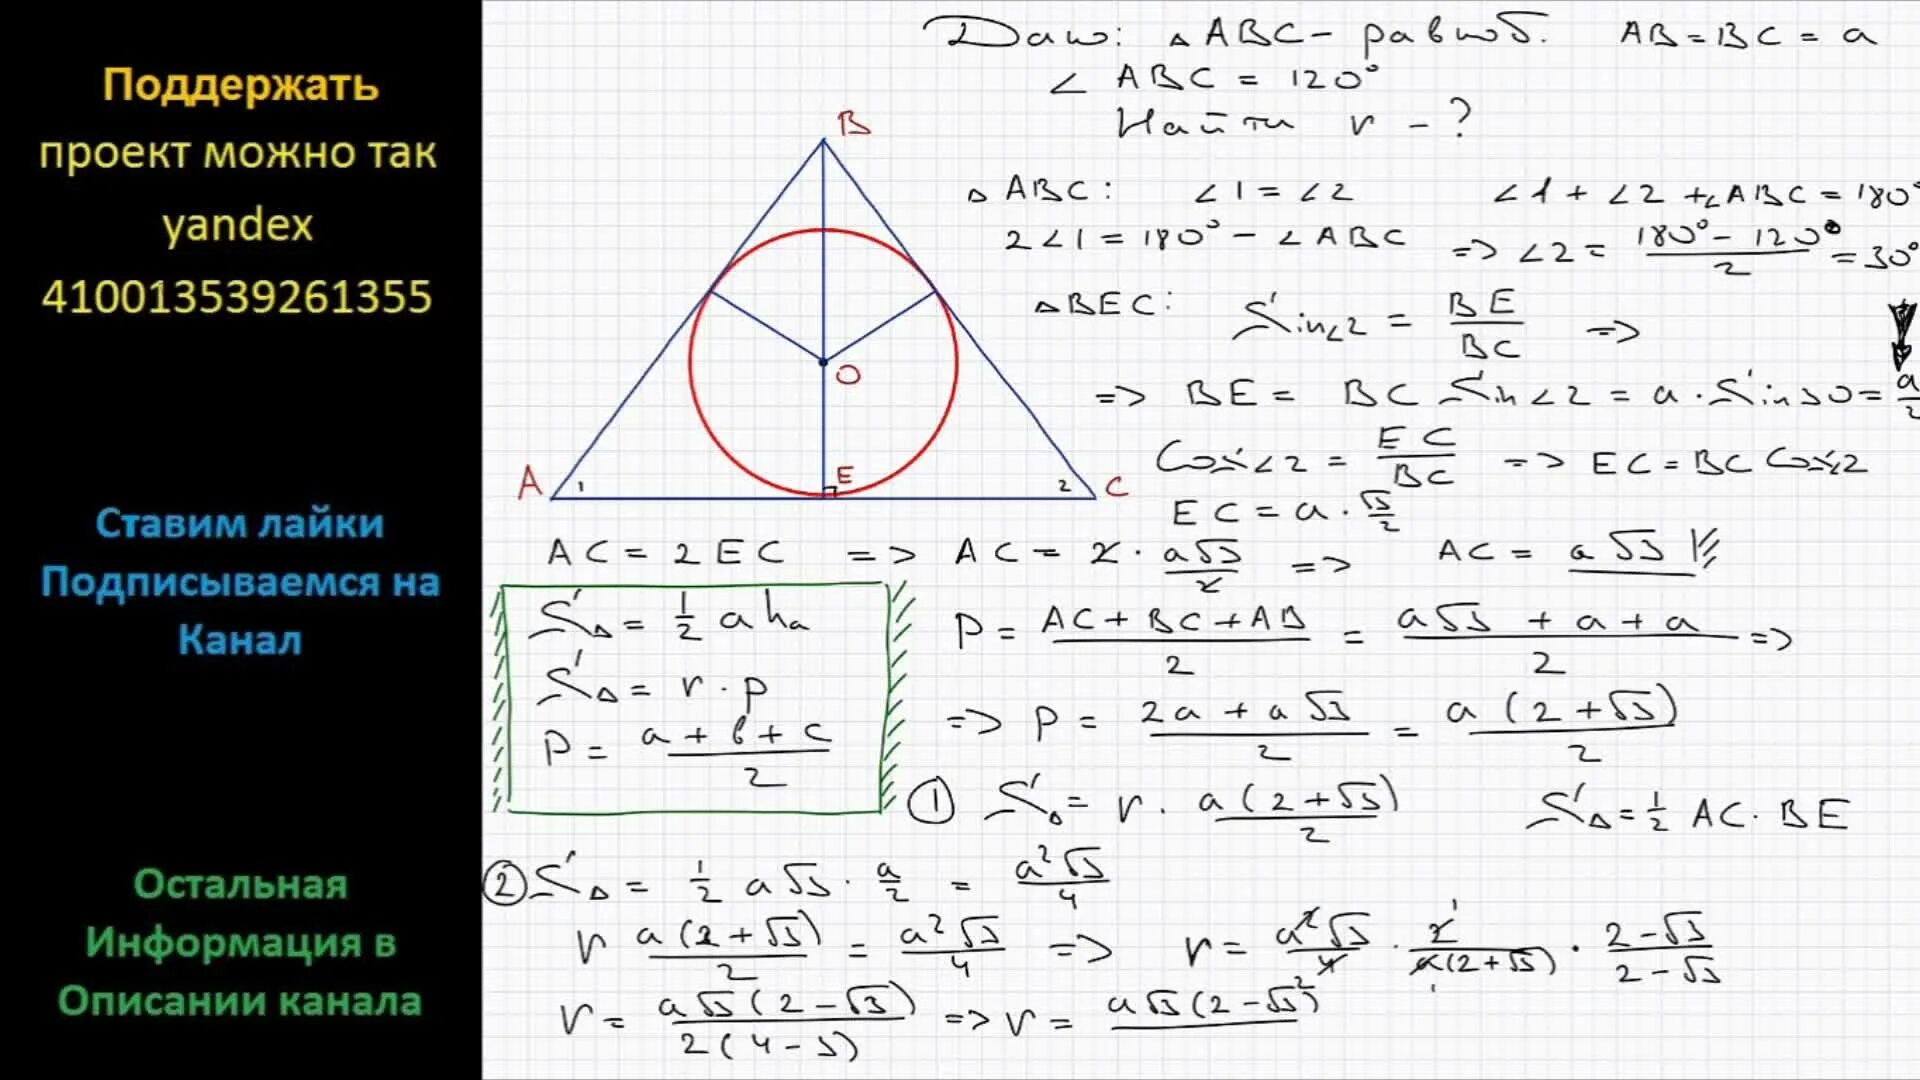 Поддержать
проект можно так
yandex
410013539261355
Ставим лайки
Подписываемся на
Канал
Остальная
Информация в
Описании канала
Дано: △ABC - равноб. AB = BC = a
∠ABC = 120°
Найти r - ?
B
O
A 1 E 2 C
△ABC: ∠1 = ∠2 ∠1 + ∠2 + ∠ABC = 180°
2∠1 = 180° - ∠ABC => ∠2 = (180° - 120°)/2 = 30°
△BEC: Sin∠2 = BE/BC =>
=> BE = BC Sin∠2 = a · Sin30 = a/2
Cos∠2 = EC/BC => EC = BC Cos∠2
EC = a · √3/2
AC = 2EC => AC = 2 · a√3/2 => AC = a√3
S△ = 1/2 a hₐ
S△ = r · p
P = (a + b + c)/2
P = (AC + BC + AB)/2 = (a√3 + a + a)/2 =>
=> P = (2a + a√3)/2 = a(2 + √3)/2
① S△ = r · a(2 + √3)/2 S△ = 1/2 AC · BE
② S△ = 1/2 a√3 · a/2 = a²√3/4
r a(2 + √3)/2 = a²√3/4 => r = a²√3/4 · 2/a(2 + √3) · (2 - √3)/(2 - √3)
r = a√3(2 - √3)/2(4 - 3) => r = a√3(2 - √3²)